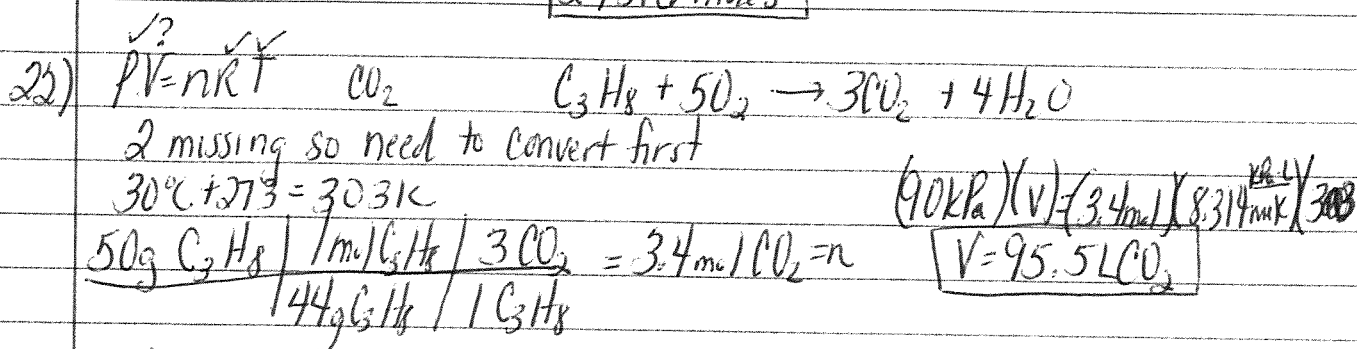 ✓? ✓✓
22) PV=nRT CO₂ C₃H₈ + 5O₂ → 3CO₂ + 4H₂O
2 missing so need to convert first
30°C + 273 = 303K
(90kPa)(V)=(3.4mol)(8.314 kPa·L/mol·K)(303
50g C₃H₈ | 1mol C₃H₈ | 3CO₂ = 3.4mol CO₂ = n V=95.5L CO₂
44g C₃H₈ | 1 C₃H₈